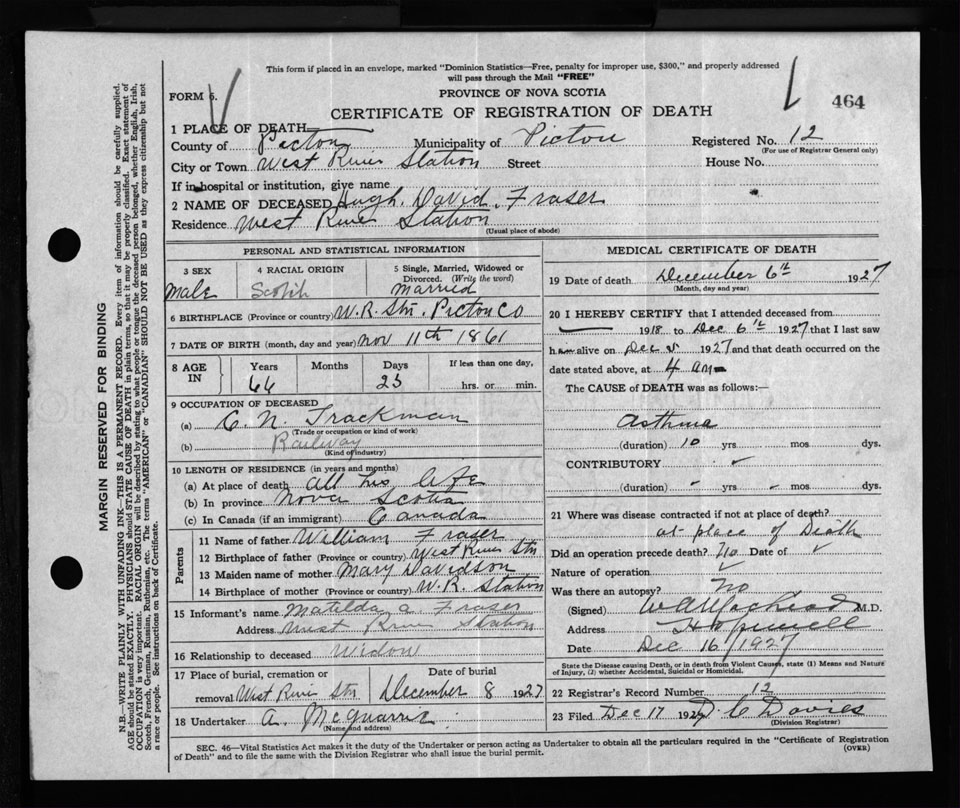 This form if placed in an envelope, marked "Dominion Statistics—Free, penalty for improper use, $300," and properly addressed
will pass through the Mail "FREE"
FORM 6.
PROVINCE OF NOVA SCOTIA
464
CERTIFICATE OF REGISTRATION OF DEATH
1 PLACE OF DEATH
County of Pictou Municipality of Pictou Registered No. 12
(For use of Registrar General only)
City or Town West River Station Street House No.
If in hospital or institution, give name
2 NAME OF DECEASED Hugh David Fraser
Residence West River Station
(Usual place of abode)
PERSONAL AND STATISTICAL INFORMATION
3 SEX 4 RACIAL ORIGIN 5 Single, Married, Widowed or Divorced. (Write the word)
Male Scotch Married
6 BIRTHPLACE (Province or country) W.R. Stn. Pictou Co
7 DATE OF BIRTH (month, day and year) Nov 11th 1861
8 AGE IN Years Months Days If less than one day,
66 25 hrs. or min.
9 OCCUPATION OF DECEASED
(a) C. N. Trackman
(Trade or occupation or kind of work)
(b) Railway
(Kind of industry)
10 LENGTH OF RESIDENCE (in years and months)
(a) At place of death All his life
(b) In province Nova Scotia
(c) In Canada (if an immigrant) Canada
Parents
11 Name of father William Fraser
12 Birthplace of father (Province or country) West River Stn
13 Maiden name of mother Mary Davidson
14 Birthplace of mother (Province or country) W. R. Station
15 Informant's name Matilda A. Fraser
Address West River Station
16 Relationship to deceased Widow
17 Place of burial, cremation or removal Date of burial
West River Stn December 8 1927
18 Undertaker A. McQuarrie
(Name and address)
MEDICAL CERTIFICATE OF DEATH
19 Date of death December 6th 1927
(Month, day and year)
20 I HEREBY CERTIFY that I attended deceased from
1918 to Dec 6th 1927 that I last saw
him alive on Dec 5 1927 and that death occurred on the
date stated above, at 4 am
The CAUSE of DEATH was as follows:—
Asthma
(duration) 10 yrs. mos. dys.
CONTRIBUTORY
(duration) - yrs. - mos. dys.
21 Where was disease contracted if not at place of death?
at place of Death
Did an operation precede death? No Date of
Nature of operation
Was there an autopsy? No
(Signed) M.D.
Address Hopewell
Date Dec 16/1927
State the Disease causing Death, or in death from Violent Causes, state (1) Means and Nature
of Injury, (2) whether Accidental, Suicidal or Homicidal.
22 Registrar's Record Number 12
23 Filed Dec 17 1927 D. C. Davies
(Division Registrar)
SEC. 46—Vital Statistics Act makes it the duty of the Undertaker or person acting as Undertaker to obtain all the particulars required in the "Certificate of Registration
of Death" and to file the same with the Division Registrar who shall issue the burial permit.
(OVER)
MARGIN RESERVED FOR BINDING
N.B.—WRITE PLAINLY WITH UNFADING INK—THIS IS A PERMANENT RECORD. Every item of information should be carefully supplied.
AGE should be stated EXACTLY. PHYSICIANS should STATE CAUSE OF DEATH in plain terms, so that it may be properly classified. Exact statement of
OCCUPATION is very important. RACIAL ORIGIN will be described by stating to what people or tongue the deceased person belonged, whether English, Irish,
Scotch, French, German, Russian, Ruthenian, etc. The terms "AMERICAN" or "CANADIAN" SHOULD NOT BE USED as they express citizenship but not
a race or people. See instructions on back of Certificate.